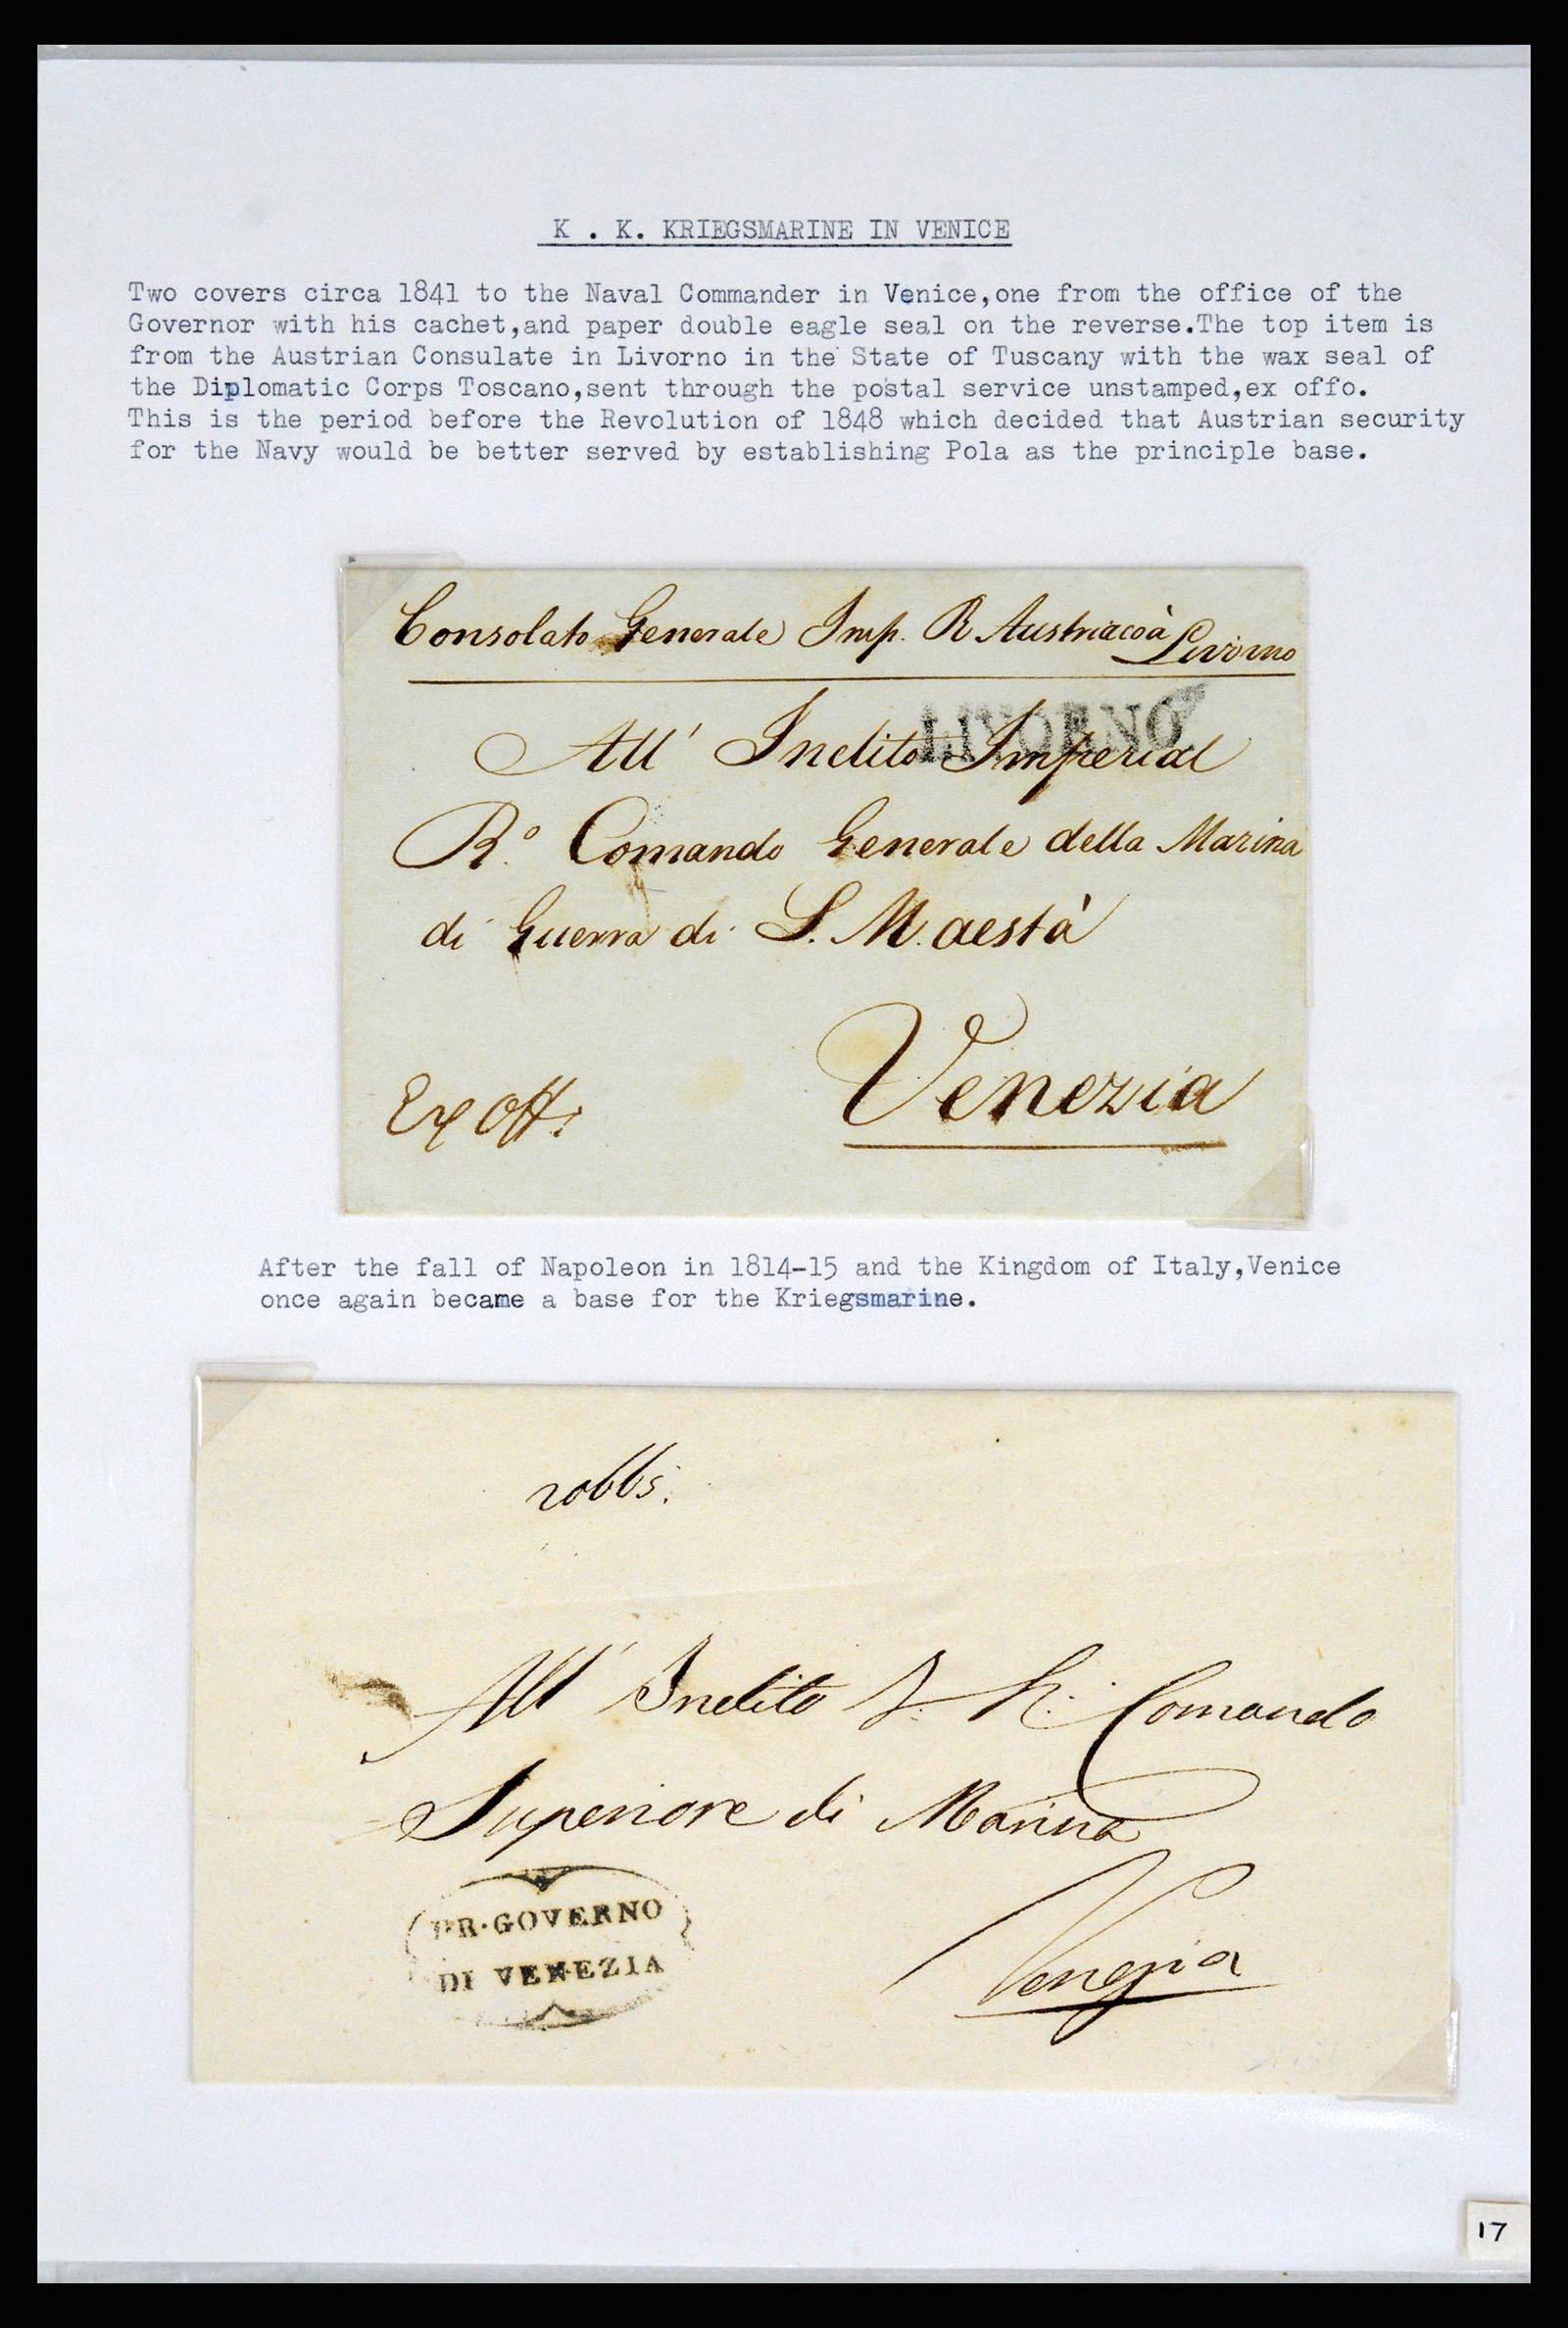 K . K. KRIEGSMARINE IN VENICE
Two covers circa 1841 to the Naval Commander in Venice,one from the office of the
Governor with his cachet,and paper double eagle seal on the reverse.The top item is
from the Austrian Consulate in Livorno in the State of Tuscany with the wax seal of
the Diplomatic Corps Toscano,sent through the postal service unstamped,ex offo.
This is the period before the Revolution of 1848 which decided that Austrian security
for the Navy would be better served by establishing Pola as the principle base.
Consolato Generale Imp. R Austriaco à Livorno
LIVORNO
All' Inclito Imperial
R.° Comando Generale della Marina
di Guerra di S. M. aestà
Venezia
Ex Off:
After the fall of Napoleon in 1814-15 and the Kingdom of Italy,Venice
once again became a base for the Kriegsmarine.
20665.
All' Inclito I. R. Comando
Superiore di Marina
I·R·GOVERNO
DI VENEZIA
Venezia
17